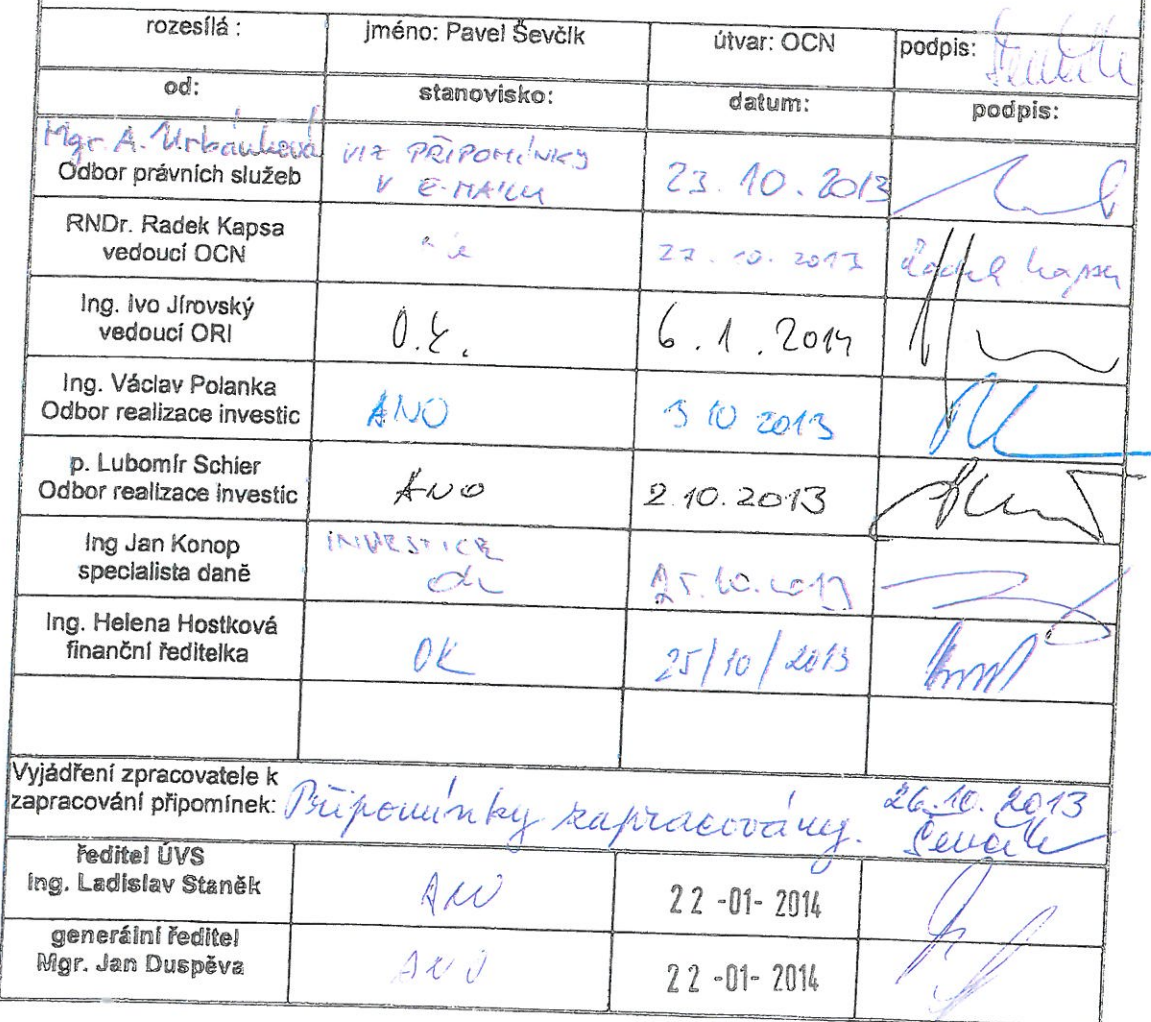 rozesílá : jméno: Pavel Ševčík útvar: OCN podpis: Ševčík
od: stanovisko: datum: podpis:
Mgr. A. Urbánková VIZ PŘIPOMÍNKY
Odbor právních služeb V E-MAILU 23. 10. 2013
RNDr. Radek Kapsa
vedoucí OCN 10. 2013 Radek Kapsa
Ing. Ivo Jírovský
vedoucí ORI O.K. 6. 1. 2014
Ing. Václav Polanka
Odbor realizace investic ANO 3 10 2013
p. Lubomír Schier
Odbor realizace investic ANO 2.10.2013
Ing Jan Konop INVESTICE
specialista daně ok 25.10.2013
Ing. Helena Hostková
finanční ředitelka OK 25/10/2013
Vyjádření zpracovatele k
zapracování připomínek: Připomínky zapracovány. 26.10. 2013
Ševčík
ředitel ÚVS
Ing. Ladislav Staněk ANO 22 -01- 2014
generální ředitel
Mgr. Jan Duspěva ANO 22 -01- 2014